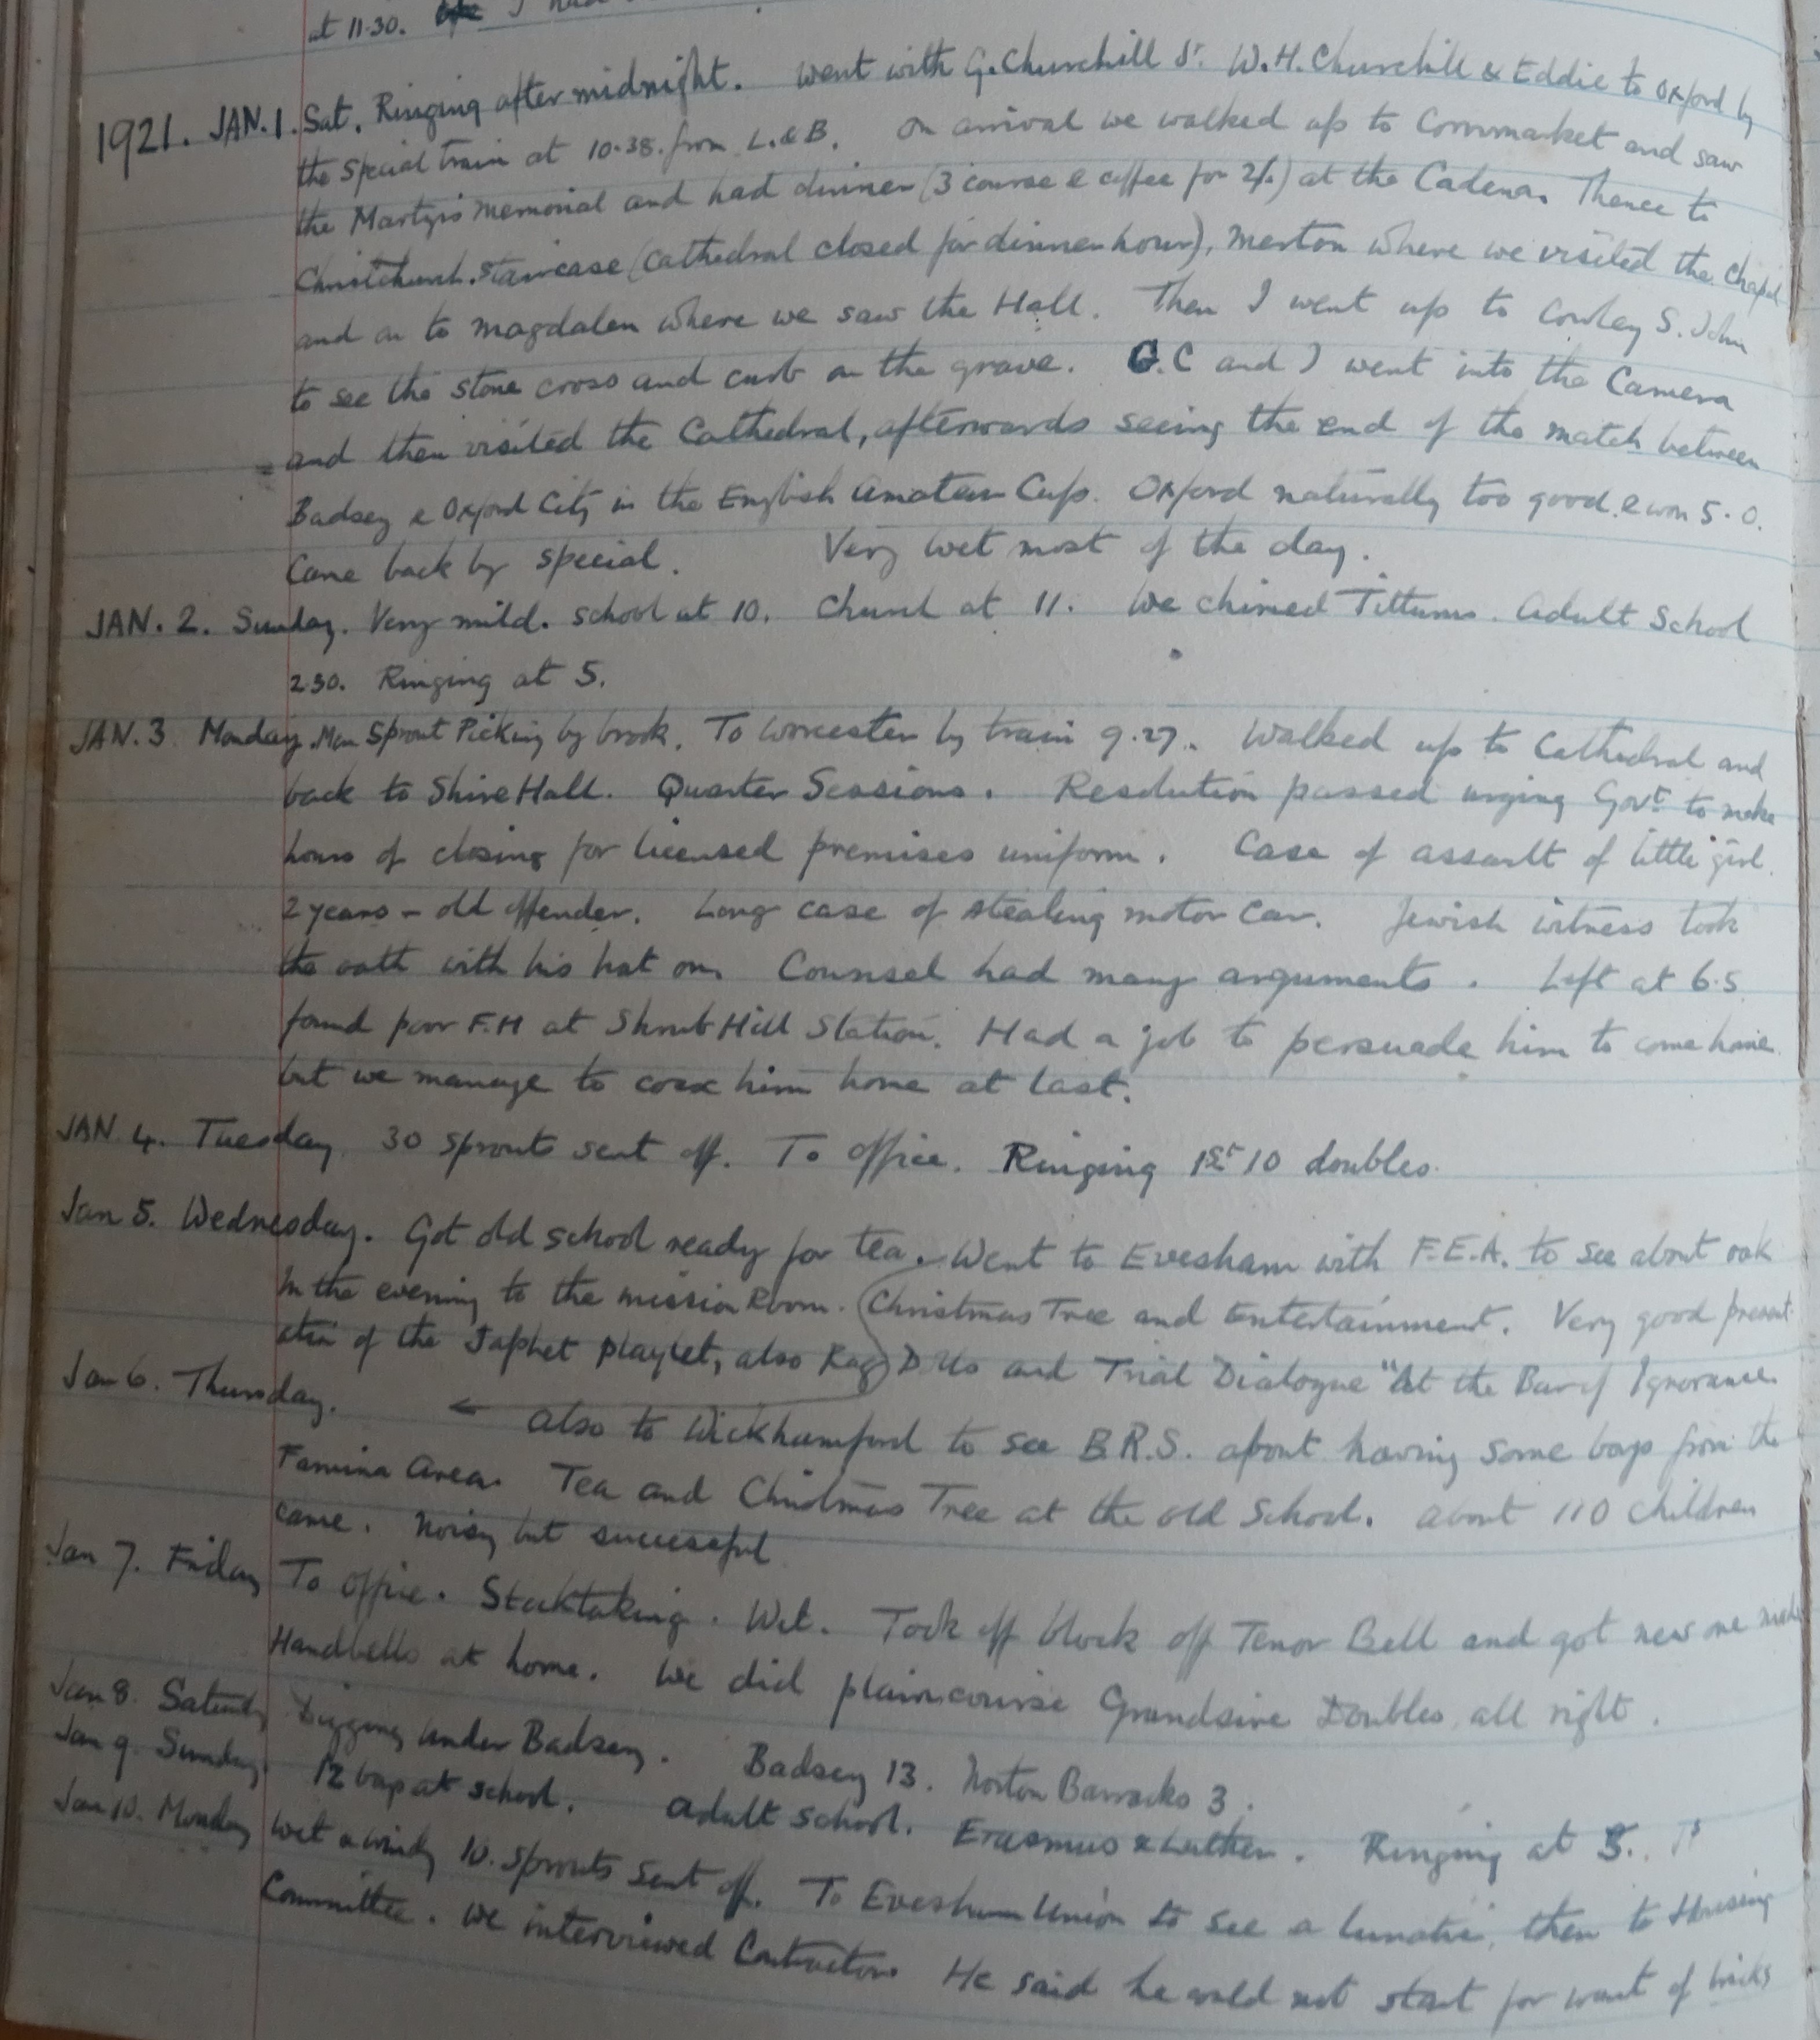 at 11-30. I had
1921. JAN. 1. Sat. Ringing after midnight. Went with G. Churchill Sr. W.H. Churchill & Eddie to Oxford by
the special train at 10.38. from L.&B. On arrival we walked up to Cornmarket and saw
the Martyrs memorial and had dinner (3 course & coffee for 2/-) at the Cadena. Thence to
Christchurch. staircase (Cathedral closed for dinner hour), Merton where we visited the Chapel
and on to Magdalen where we saw the Hall. Then I went up to Cowley S. John
to see the stone cross and curb on the grave. G.C and I went into the Camera
and then visited the Cathedral, afterwards seeing the end of the match between
Badsey & Oxford City in the English Amateur Cup. Oxford naturally too good & won 5-0.
Came back by special. Very wet most of the day.
JAN. 2. Sunday. Very mild. School at 10. Church at 11. We chimed Tittums. Adult School
2.30. Ringing at 5.
JAN. 3 Monday. Men Sprout Picking by brook. To Worcester by train 9.27. Walked up to Cathedral and
back to Shire Hall. Quarter Sessions. Resolution passed urging Govt to make
hours of closing for licensed premises uniform. Case of assault of little girl.
2 years - old offender. Long case of stealing motor car. Jewish witness took
the oath with his hat on. Counsel had many arguments. Left at 6.5
found poor F.H at Shrub Hill Station. Had a job to persuade him to come home.
but we manage to coax him home at last.
JAN 4. Tuesday. 30 sprouts sent off. To office. Ringing 1st 10 doubles.
Jan 5. Wednesday. Got old school ready for tea. Went to Evesham with F.E.A. to see about oak
In the evening to the mission Room. (Christmas Tree and Entertainment. Very good present-
ation of the Japhet playlet, also Rag and Trial Dialogue "At the Bar of Ignorance.
Jan 6. Thursday. ← also to Wickhamford to see B.R.S. about having some boys from the
Famine Area. Tea and Christmas Tree at the old School. About 110 children
came. Noisy but successful
Jan 7. Friday To office. Stocktaking. Wet. Took off block off Tenor Bell and got new one made
Handbells at home. We did plain course Grandsire Doubles all right.
Jan 8. Saturday Digging under Badsey. Badsey 13. Norton Barracks 3.
Jan 9. Sunday. 12 boys at school. Adult School. Erasmus & Luther. Ringing at 5.
Jan 10. Monday Wet & windy 10. sprouts sent off. To Evesham Union to see a lunatic, then to Housing
Committee. We interviewed Contractor. He said he could not start for want of bricks